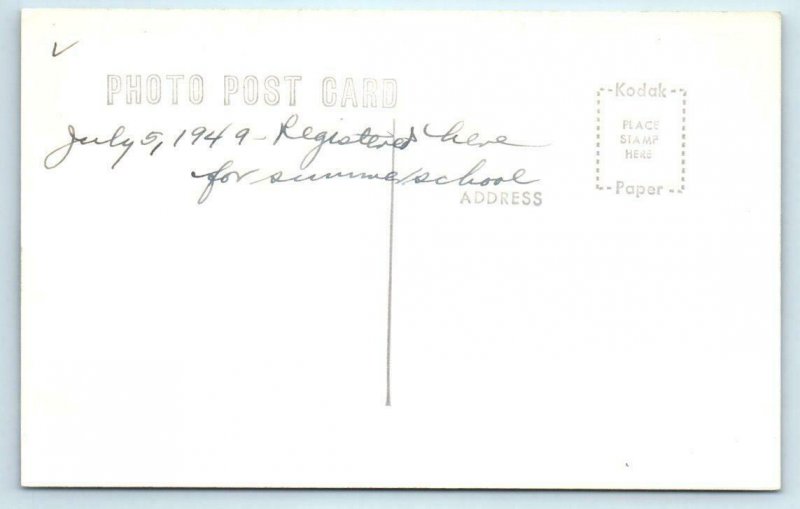 PHOTO POST CARD
Kodak
PLACE
STAMP
HERE
Paper
July 5, 1949 - Registered here
for summer school
ADDRESS